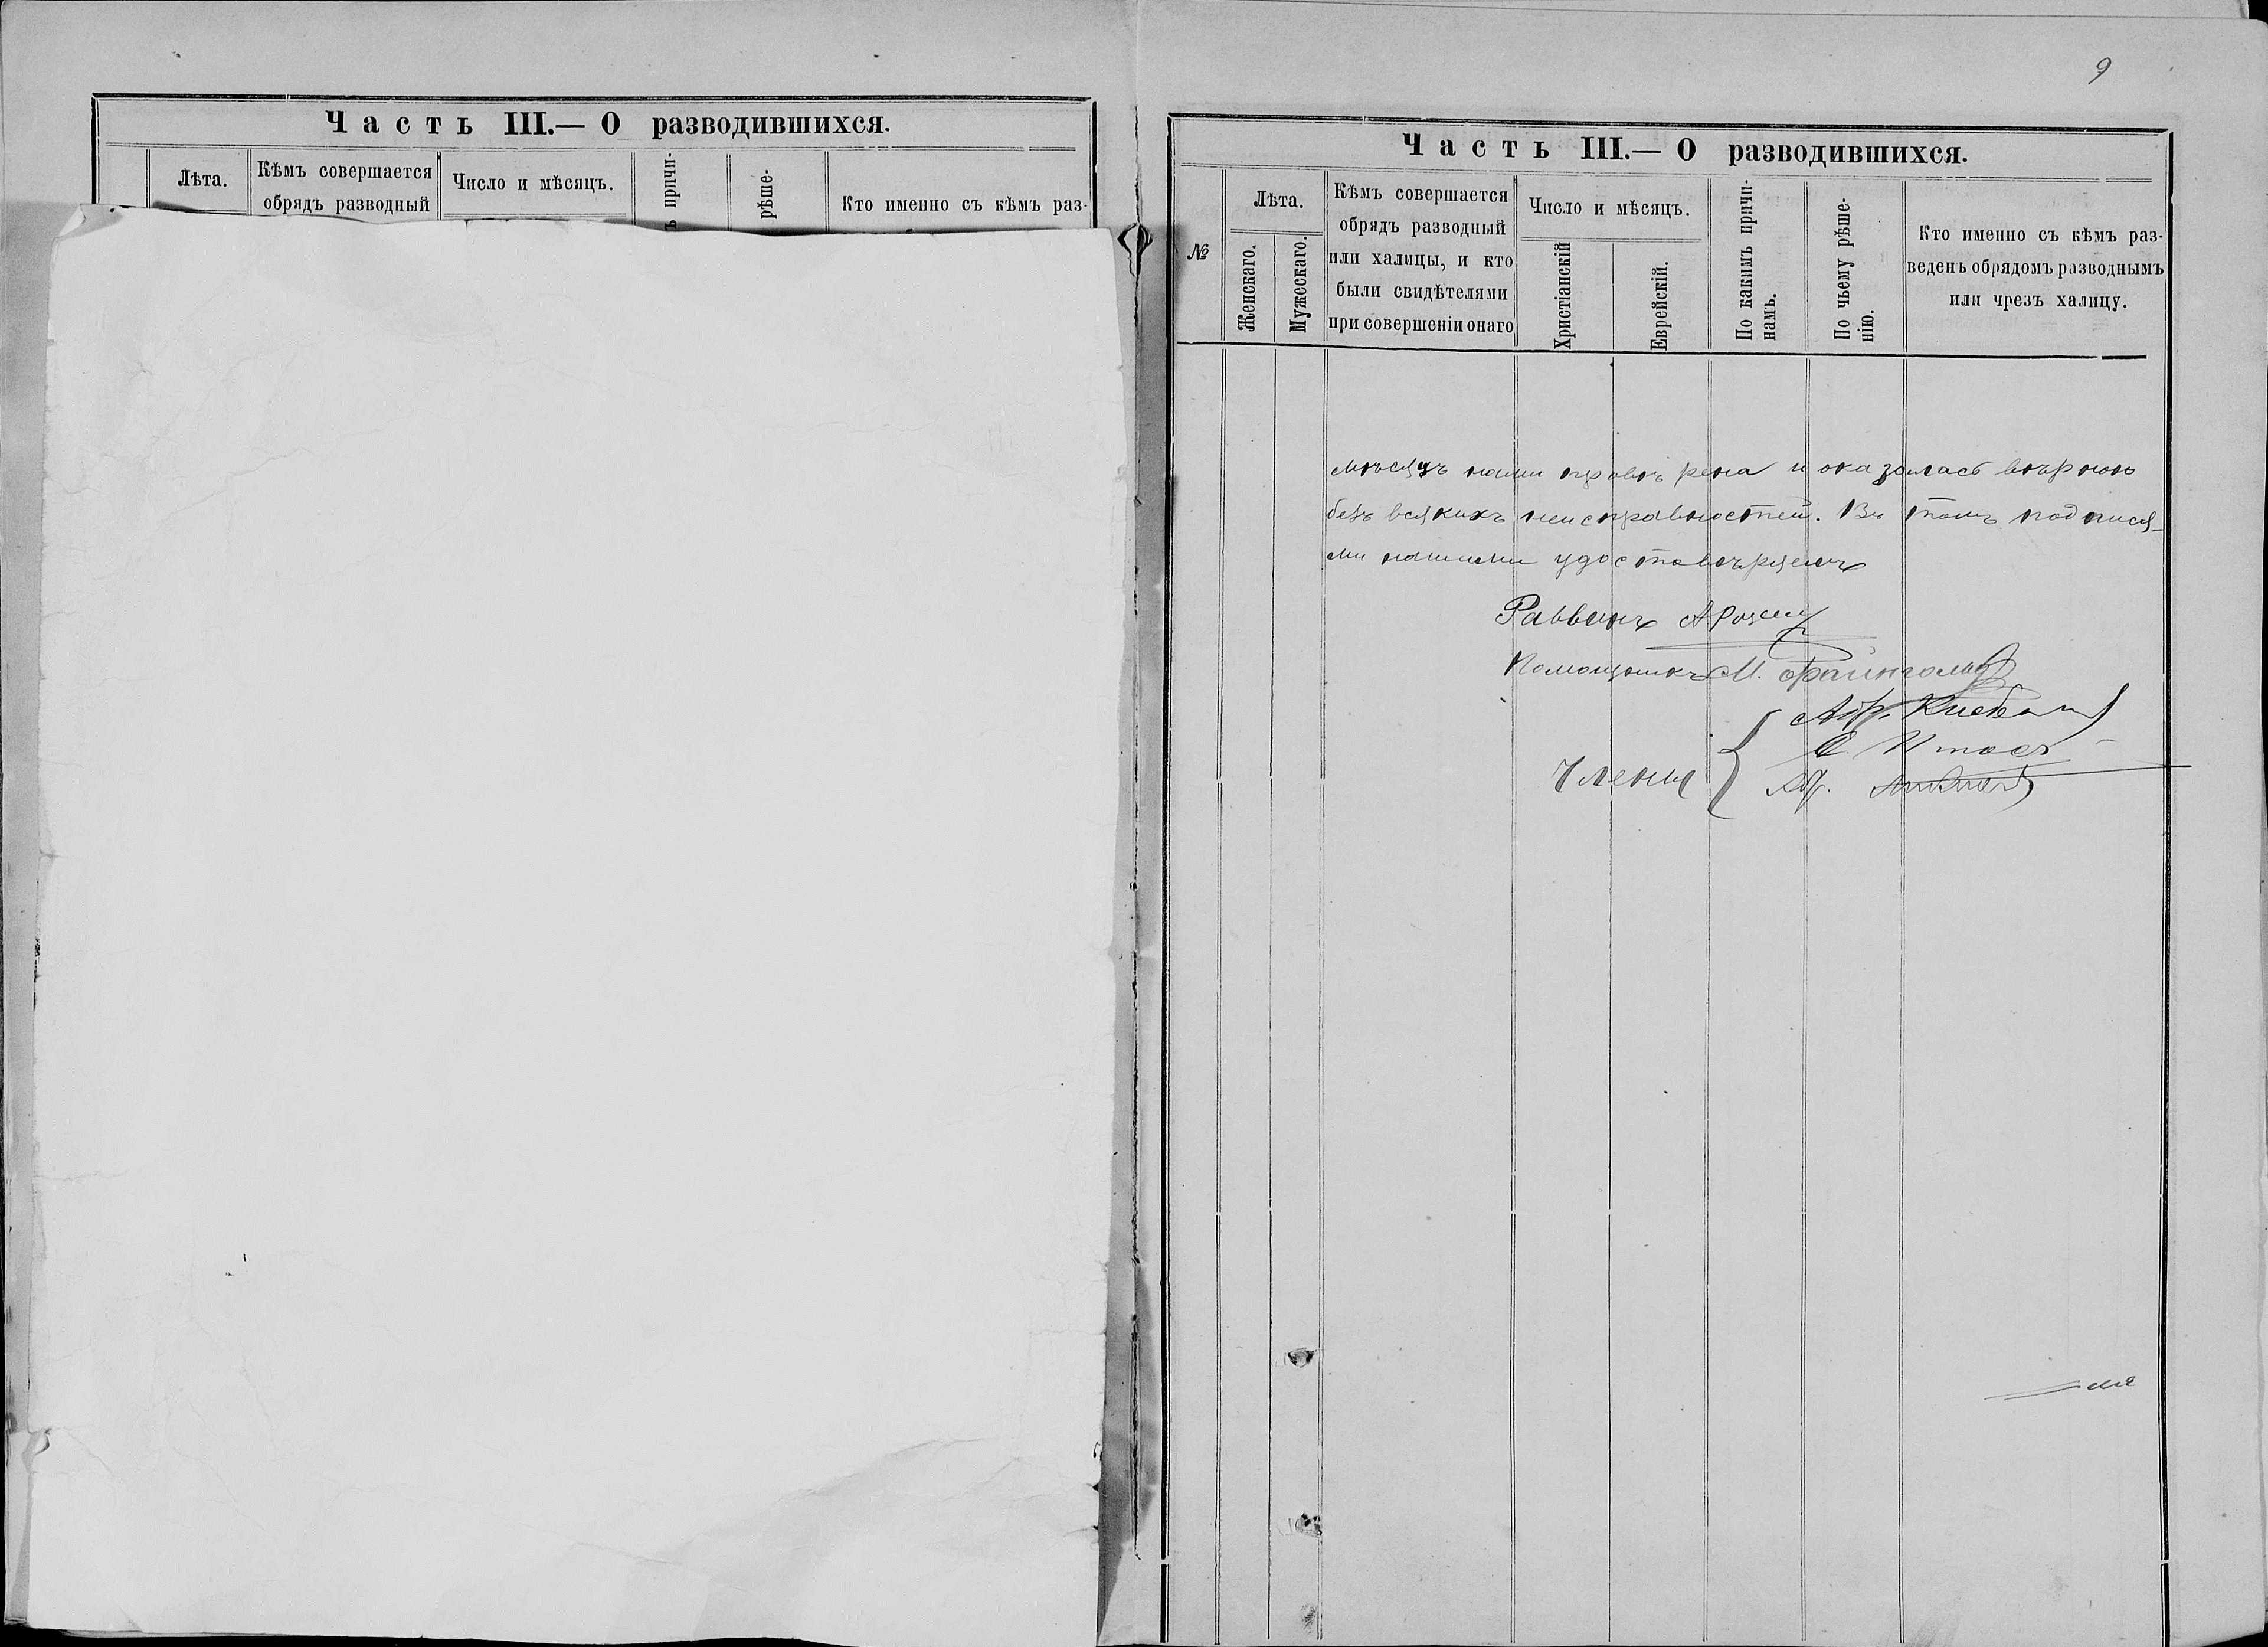 Часть III.— О разводившихся.
Лѣта.
Кѣмъ совершается
обрядъ разводный
Число и мѣсяцъ.
причи-
рѣше-
Кто именно съ кѣмъ раз-
9
Часть III.— О разводившихся.
№
Лѣта.
Женскаго.
Мужескаго.
Кѣмъ совершается
обрядъ разводный
или халицы, и кто
были свидѣтелями
при совершеніи онаго
Число и мѣсяцъ.
Христіанскій
Еврейскій.
По какимъ причи-
намъ.
По чьему рѣше-
нію.
Кто именно съ кѣмъ раз-
веденъ обрядомъ разводнымъ
или чрезъ халицу.
мѣсяцъ нами провѣрена и оказалась вѣрною
безъ всякихъ неисправностей. Въ томъ подпися-
ми нашими удостовѣряемъ
Раввинъ А
Помощникъ М. Файнгольд
Члены
Абр.